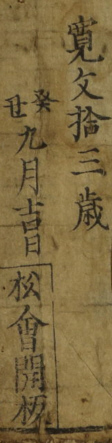 寛文拾三歳
癸丑九月吉日
松會開板